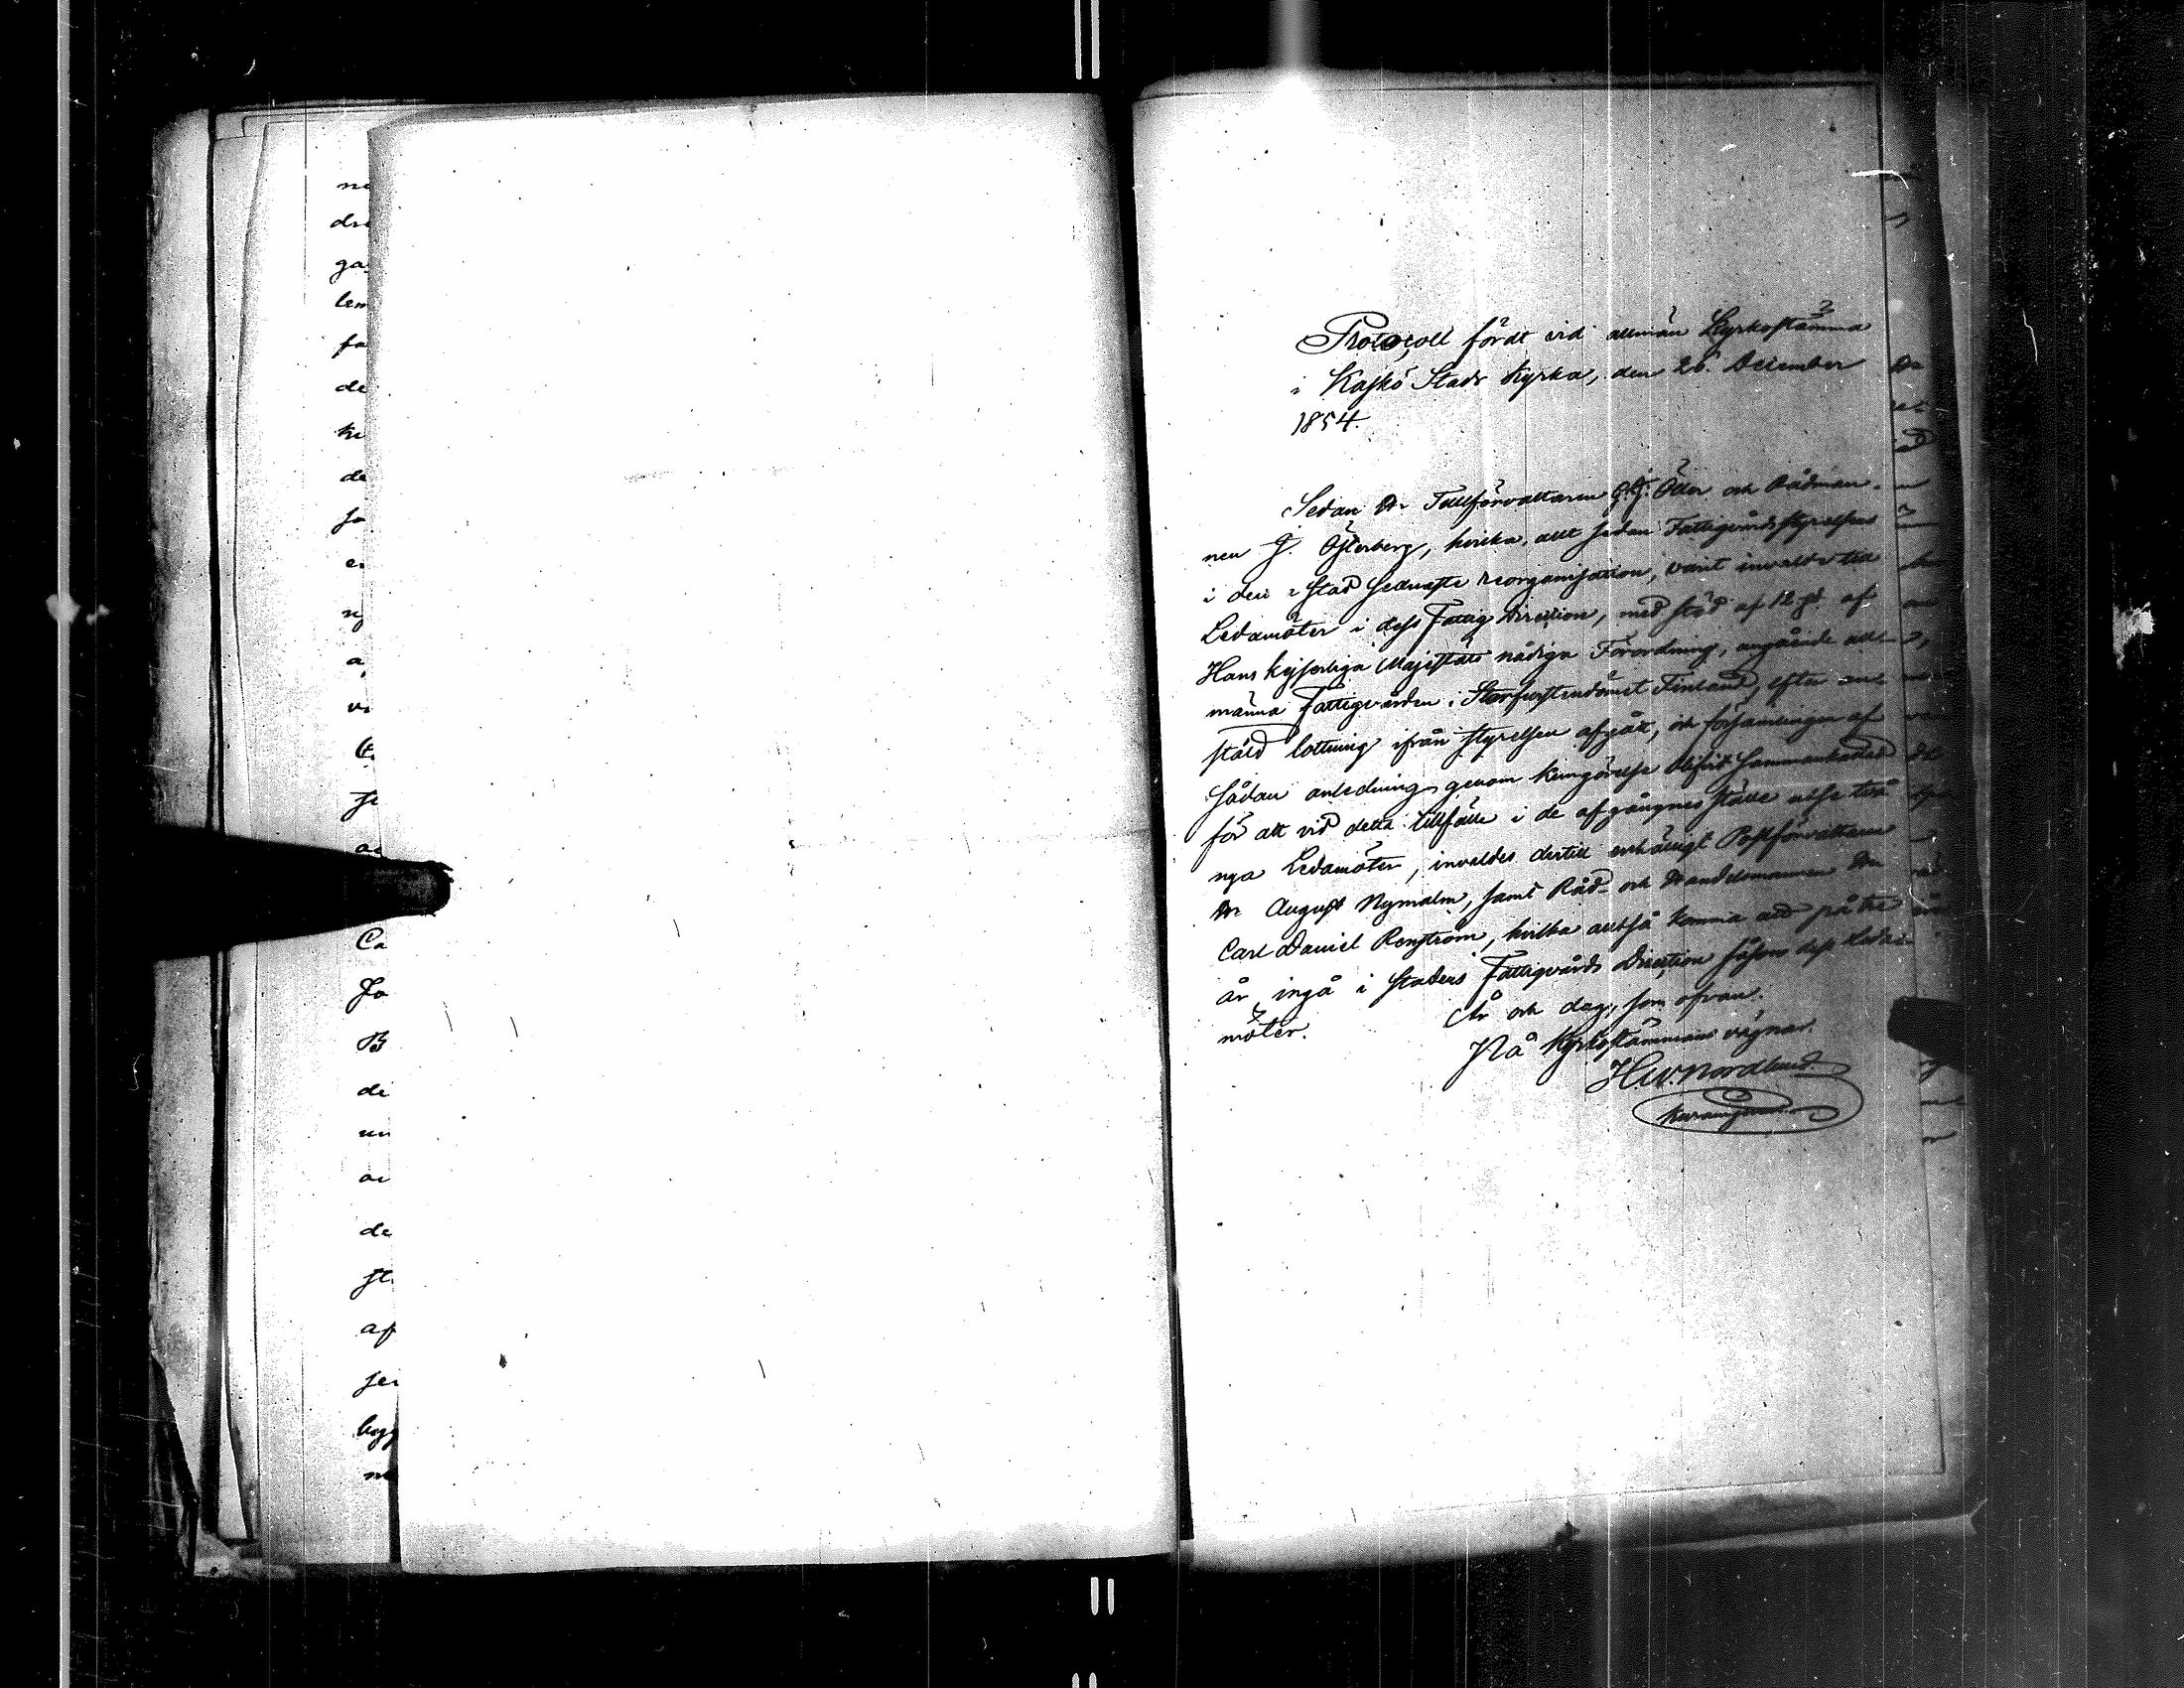 Protocoll fördt vid allmän Kyrkostämma
i Kaskö Stads Kyrka, den 26 December
1854.
Sedan Hr Tullförvaltaren G. J. Öller och Rådman-
nen J. Österberg, hvilka, allt sedan Fattigvårdsstyrelsens
i den Stad senaste reorganisation, varit invalde till
Ledamöter i dess Fattig Direction, med stöd af 12 § af
Hans Kejserliga Majestäts nådiga Förordning, angående all-
männa Fattigvården i Storfurstendömet Finland, efter an-
stäld lottning ifrån styrelsen afgått, och församlingen af
sådan anledning genom kungörelse blifvit sammankallad
för att vid detta tillfälle i de afgångnes ställe utse tvåå
nya Ledamöter, invaldes dertill enhälligt Postförvaltaren
Hr August Nymalm, samt Råd- och Handelsmannen Hr
Carl Daniel Renström, hvilka alltså komma att på tre
år ingå i Stadens Fattigvårds Direction såsom dess Leda-
möter.
År och dag, som ofvan.
På Kyrkostämmans vägnar.
H. W. Nordlund
ne
dre
ga
lem
fa
de
de
a
Ca
Jo
B
di
un
de
st
af
ser
bygg